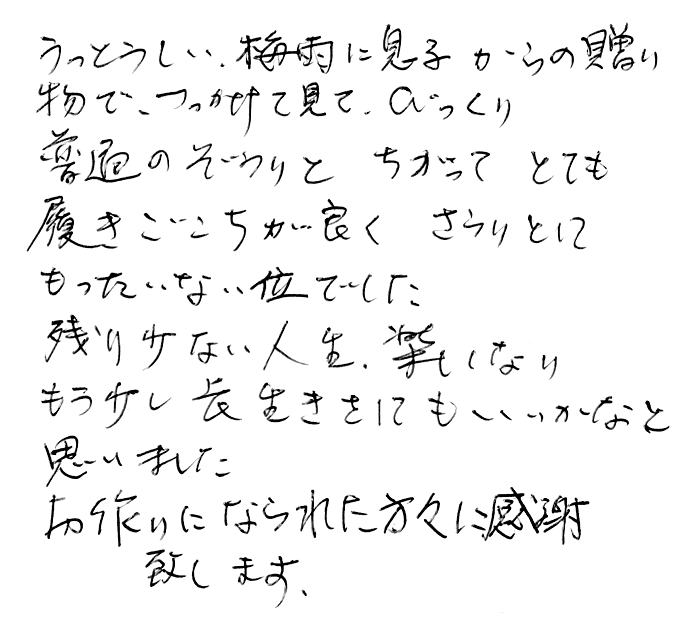 うっとうしい、梅雨に息子からの贈り
物で、つっかけて見て、びっくり
普通のぞうりと ちがって とても
履きごこちが良く ぞうりとは
もったいない位でした
残り少ない人生、楽しくなり
もう少し長生きさにてもいいかなと
思いました
お作りになられた方々に感謝
致します、